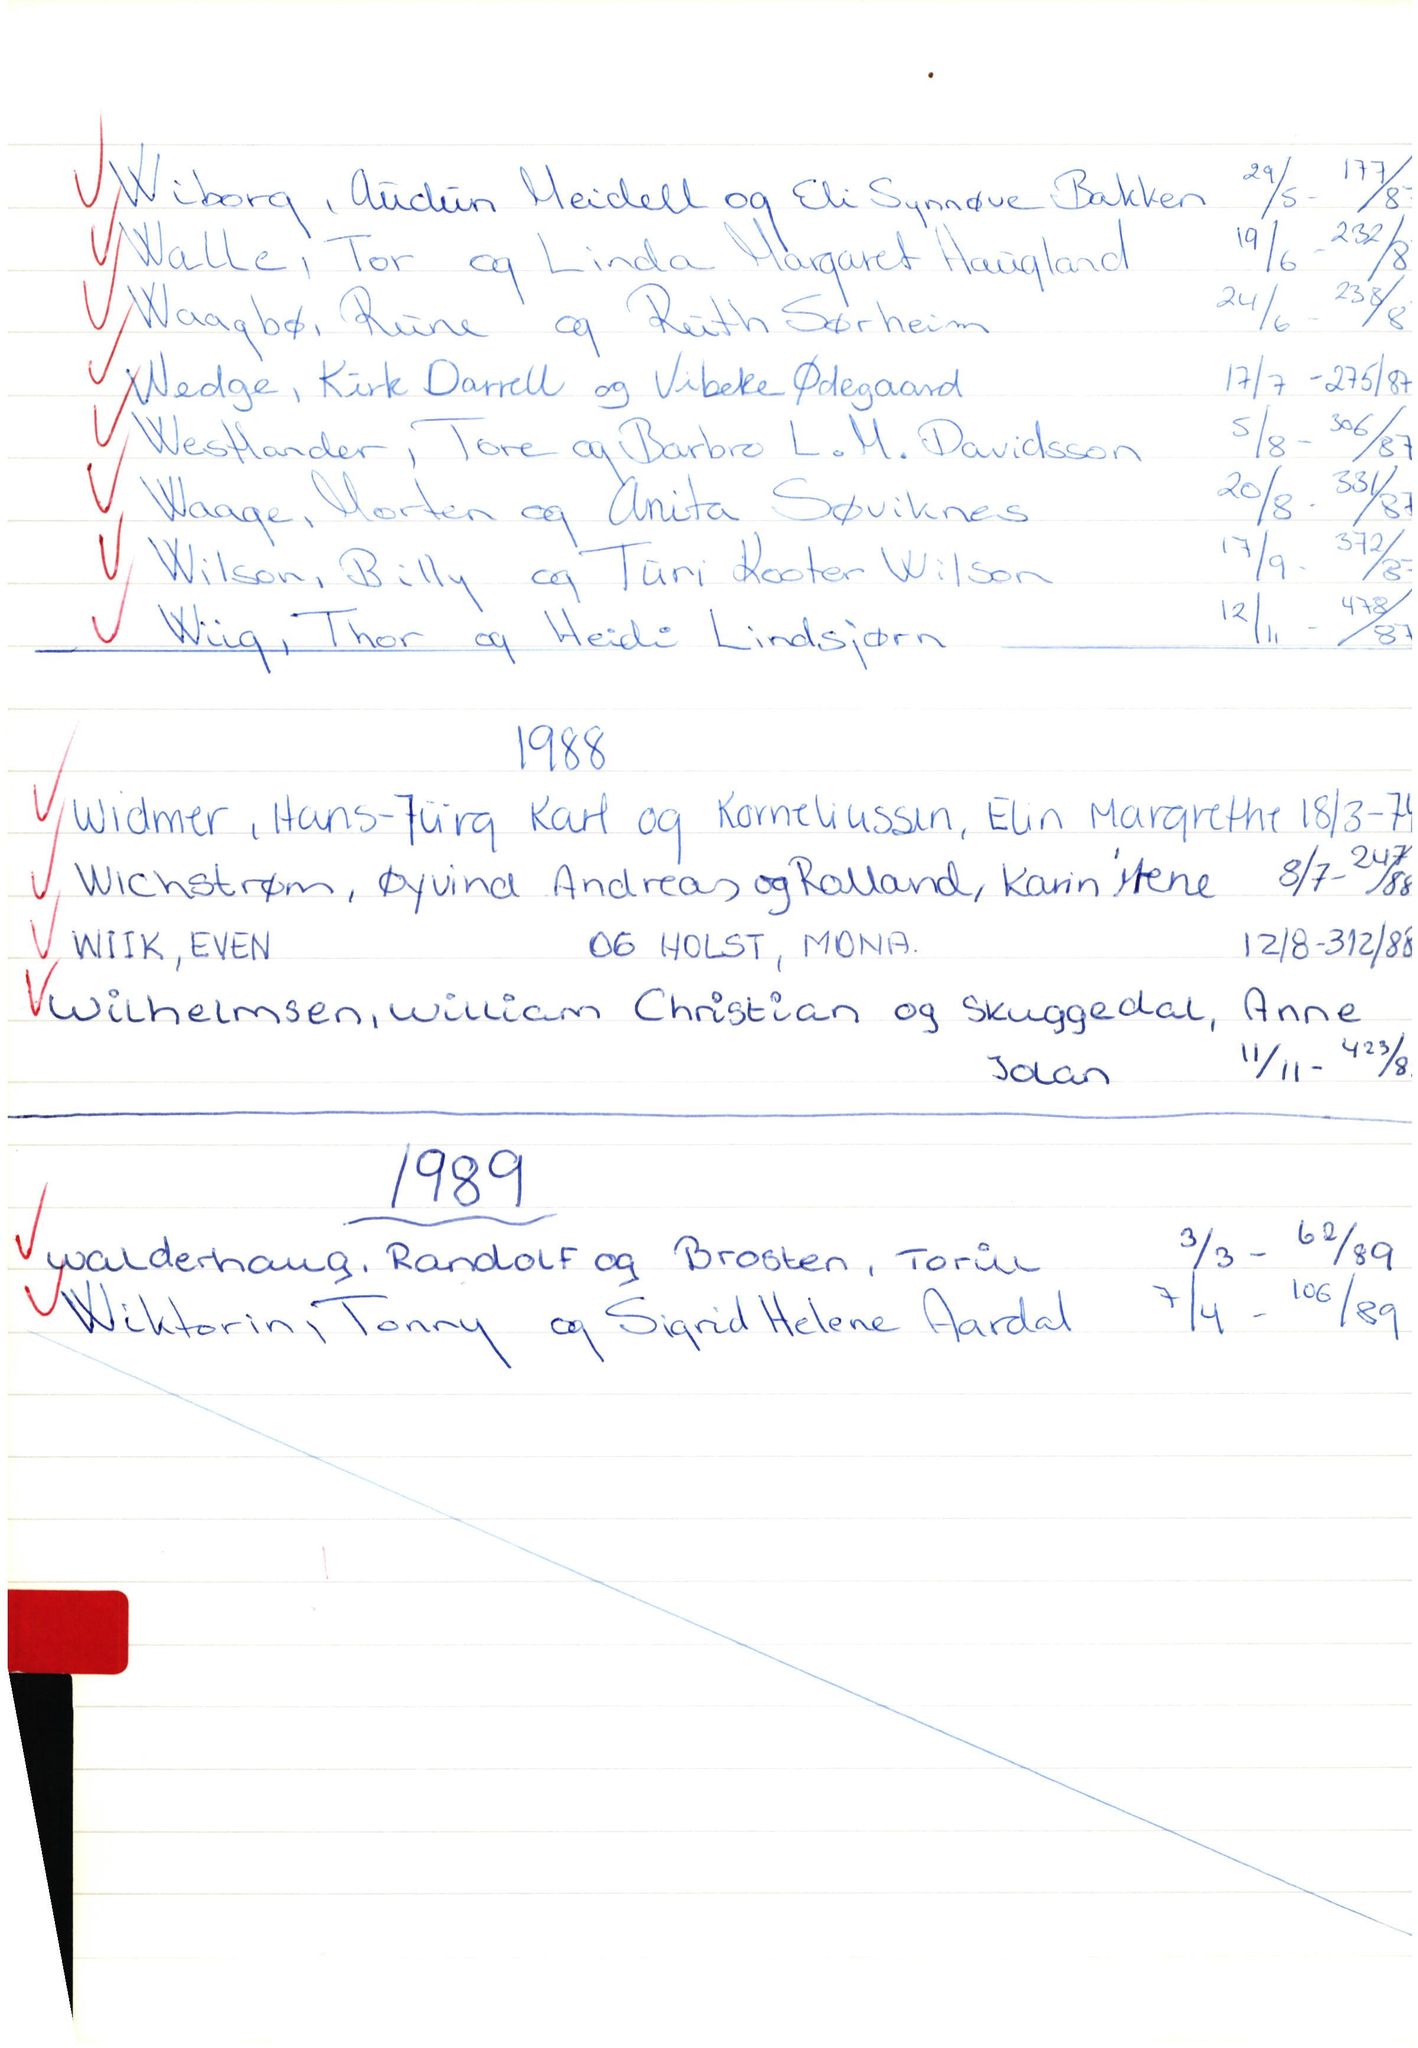 Wiborg, Audun Meidell og Eli Synnøve Bakken 29/5 - 177/8
Walle, Tor og Linda Margaret Haugland 19/6 - 232/8
Waagbø, Rune og Ruth Sørheim 24/6 - 238/8
Wedge, Kirk Darrell og Vibeke Ødegaard 17/7 - 275/87
Westlander, Tore og Barbro L. M. Davidsson 5/8 - 306/87
Waage, Morten og Anita Søviknes 20/8 - 331/87
Wilson, Billy og Turi Kooter Wilson 17/9 - 372/8
Wiig, Thor og Heidi Lindsjørn 12/11 - 478/87
1988
Widmer, Hans-Jürg Karl og Korneliussen, Elin Margrethe 18/3-74
Wichstrøm, Øyvind Andreas og Rolland, Karin Irene 8/7 - 247/88
WIIK, EVEN OG HOLST, MONA. 12/8-312/88
Wilhelmsen, William Christian og Skuggedal, Anne
Jolan 11/11 - 423/8
1989
Walderhaug, Randolf og Brosten, Torill 3/3 - 62/89
Wiktorin, Tonny og Sigrid Helene Aardal 7/4 - 106/89